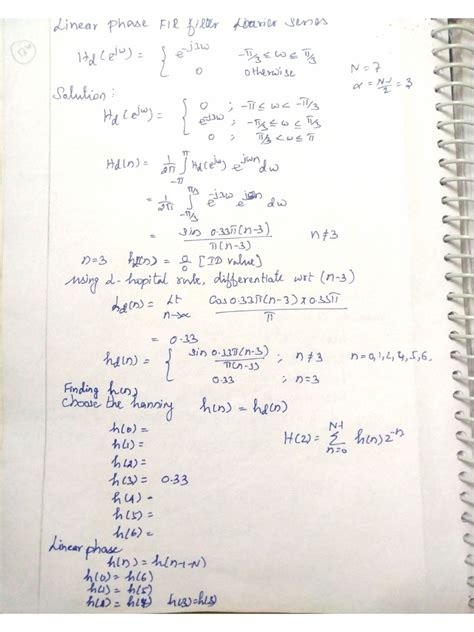 Linear phase FIR filter Fourier series
Hd(e^jω) = { e^-j3ω -π/3 ≤ ω ≤ π/3
0 otherwise
N = 7
α = N-1/2 = 3
Solution:
Hd(e^jω) = { 0 ; -π ≤ ω < -π/3
e^-j3ω ; -π/3 ≤ ω ≤ π/3
0 ; π/3 < ω ≤ π
Hd(n) = 1/2π ∫_-π^π Hd(e^jω) e^jωn dω
= 1/2π ∫_-π/3^π/3 e^-j3ω e^jωn dω
= sin 0.33π(n-3) / π(n-3) n≠3
n=3 hd(n) = 0/0 [ID value]
using L-hopital rule, differentiate wrt (n-3)
hd(n) = Lt n→∞ cos 0.33π(n-3) × 0.33π / π
= 0.33
hd(n) = { sin 0.33π(n-3) / π(n-3) ; n≠3 n=0,1,2,4,5,6.
0.33 ; n=3
Finding h(n)
Choose the hanning h(n) = hd(n)
h(0) =
h(1) =
h(2) =
h(3) = 0.33
h(4) =
h(5) =
h(6) =
H(z) = N-1 Σ n=0 h(n) z^-n
Linear phase
h(n) = h(n-1-N)
h(0) = h(6)
h(1) = h(5)
h(3)=h(3)